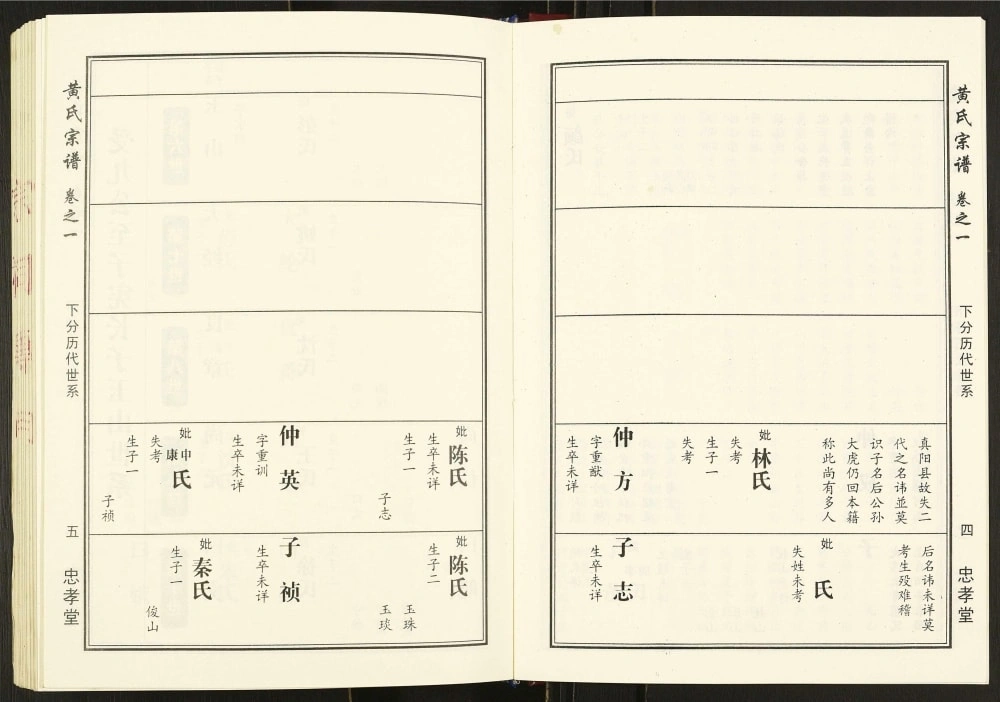 黄氏宗谱
卷之一
下分历代世系
四
忠孝堂
真阳县故失二
代之名讳並莫
识子名后公孙
大虎仍回本籍
称此尚有多人
妣
林氏
失考
生子一
失考
仲方
字重猷
生卒未详
后名讳未详莫
考生殁难稽
妣
氏
失姓未考
子志
生卒未详
妣
陈氏
生卒未详
生子一
子志
仲英
字重训
生卒未详
妣
申
康
氏
失考
生子一
子祯
妣
陈氏
生子二
玉珠
玉琰
子祯
生卒未详
妣
秦氏
生子一
俊山
黄氏宗谱
卷之一
下分历代世系
五
忠孝堂